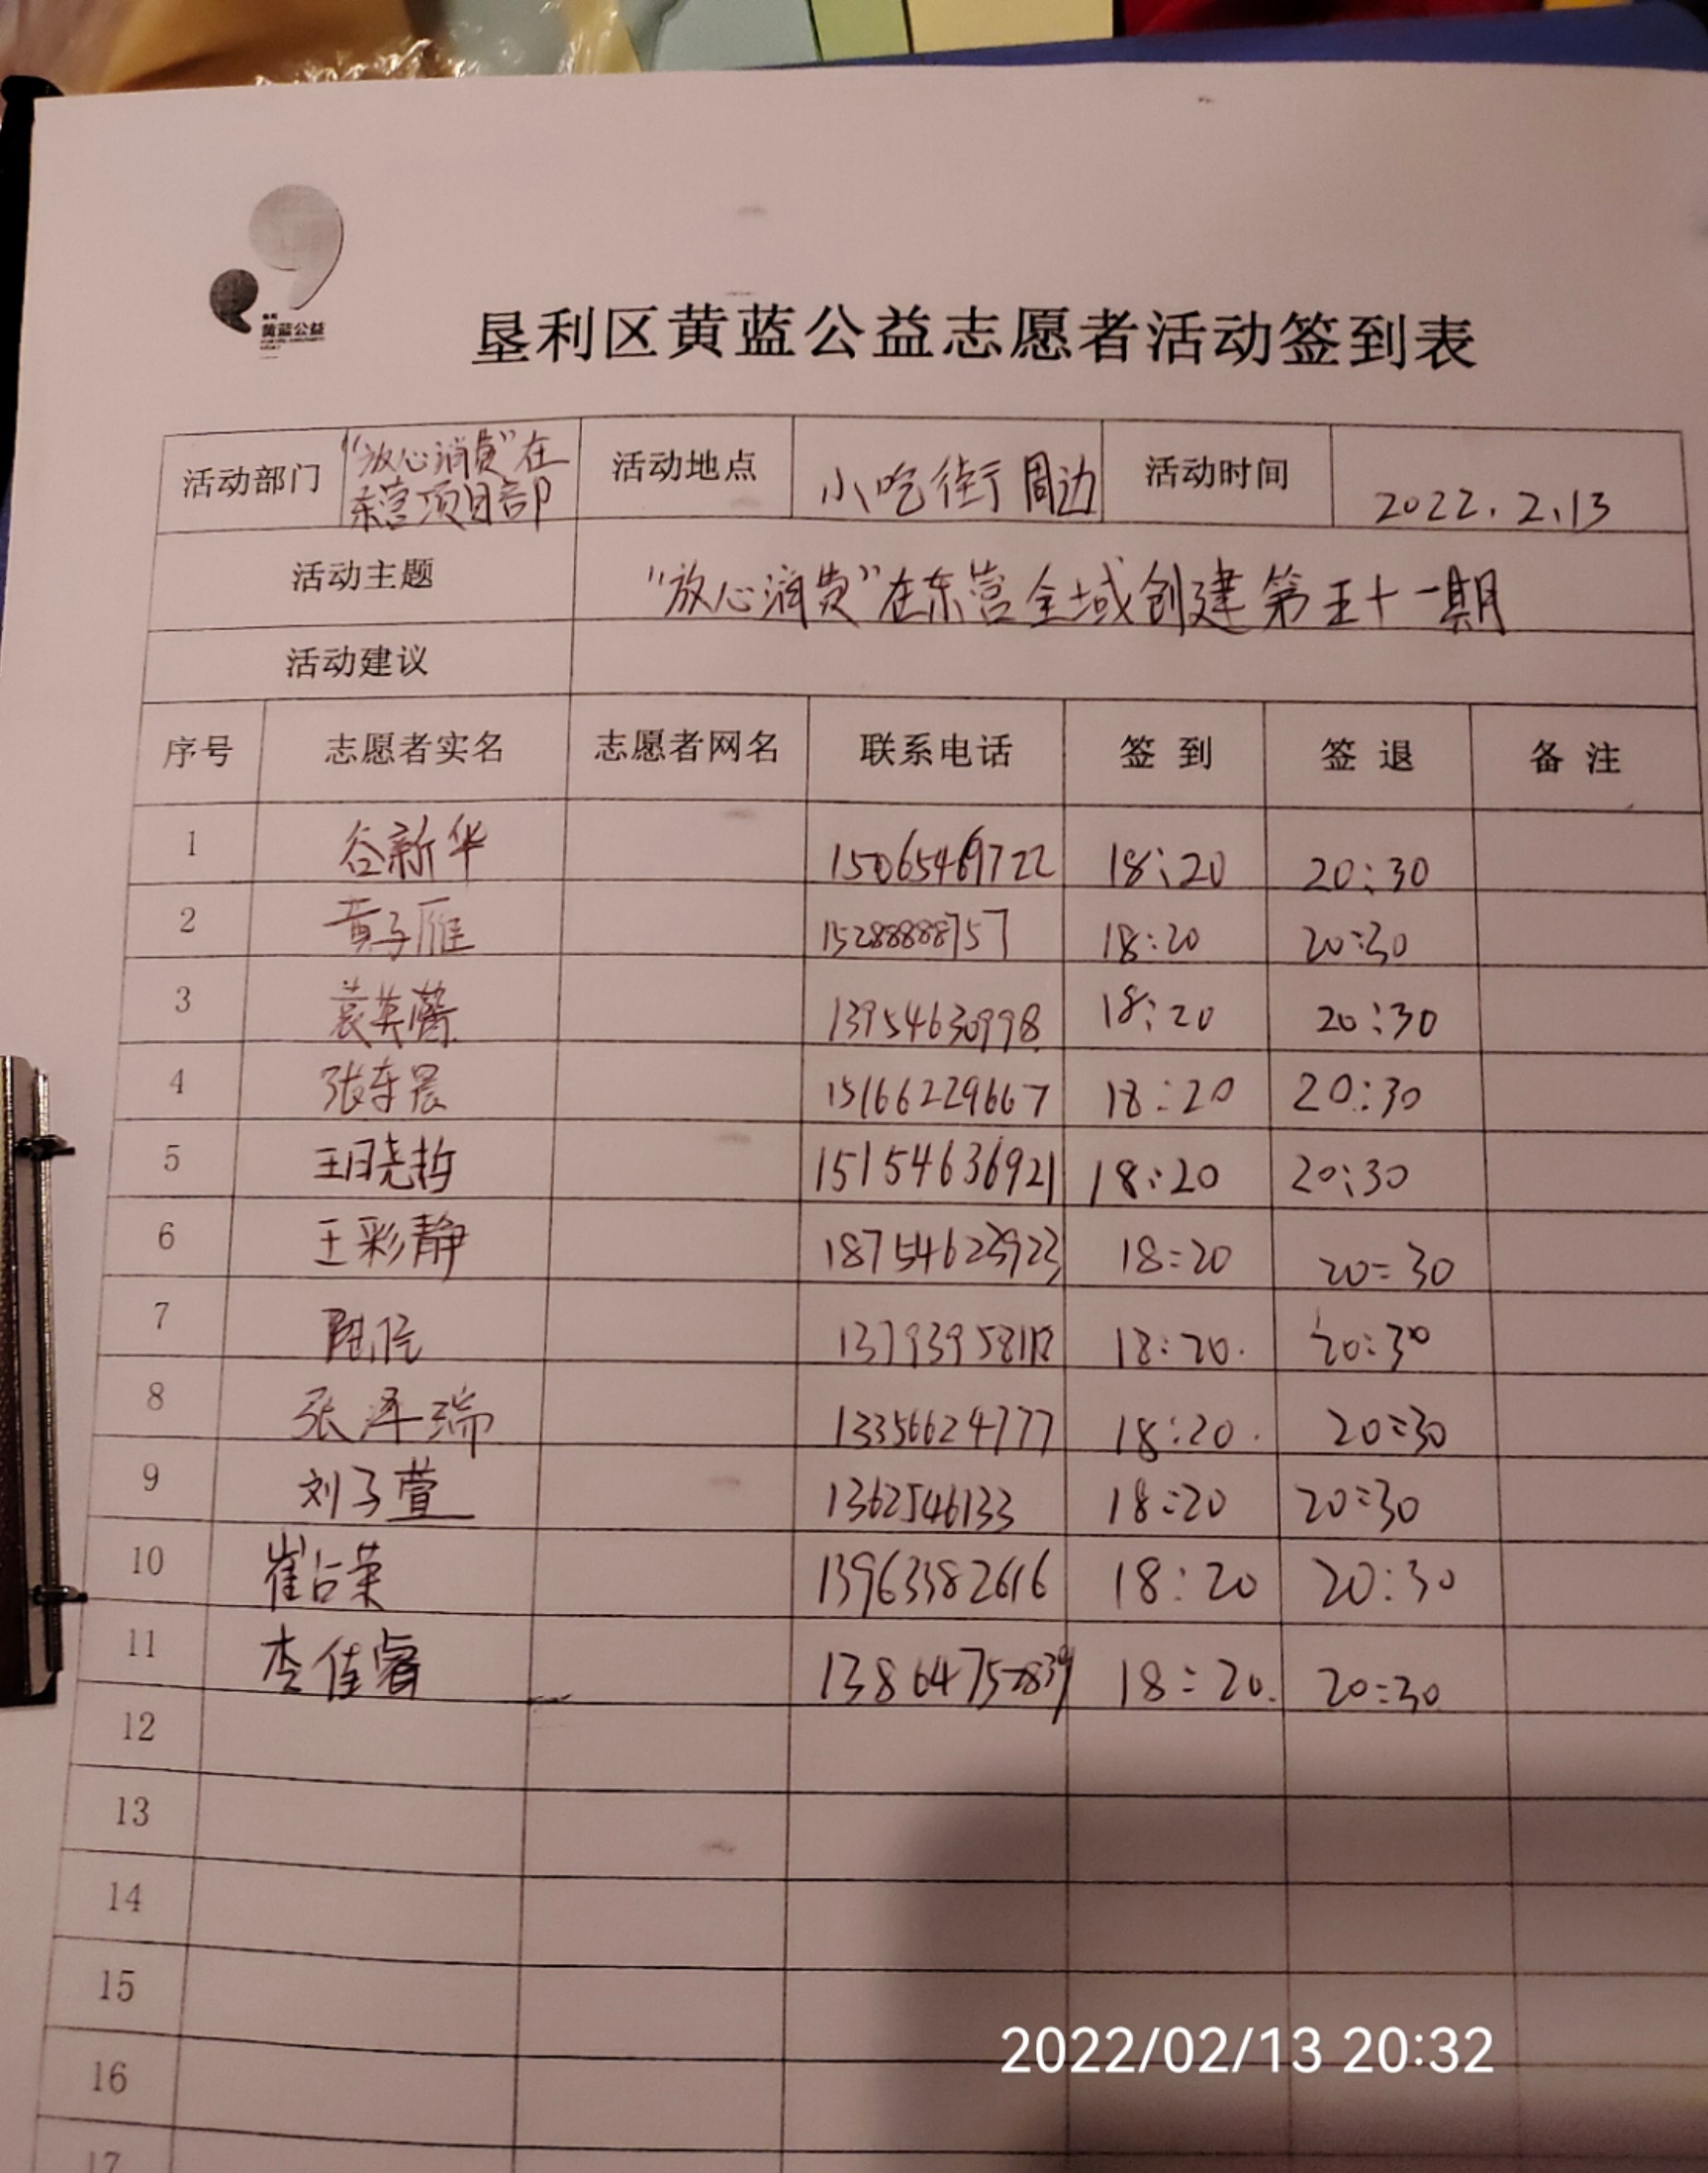 黄蓝公益
垦利区黄蓝公益志愿者活动签到表
活动部门 "放心消费"在东营项目部 活动地点 小吃街周边 活动时间 2022.2.13
活动主题 "放心消费"在东营全域创建第五十一期
活动建议
序号 志愿者实名 志愿者网名 联系电话 签到 签退 备注
1 谷新华 15065469722 18:20 20:30
2 黄子雁 15288888757 18:20 20:30
3 袁英馨 13954630998 18:20 20:30
4 张车晨 15166229667 18:20 20:30
5 王晓哲 15154636921 18:20 20:30
6 王彩静 18754623923 18:20 20:30
7 18:20 20:30
8 张泽瑞 13356624777 18:20 20:30
9 刘子萱 1362546133 18:20 20:30
10 崔占荣 13963382616 18:20 20:30
11 李佳睿 18:20 20:30
12
13
14
15
16
17
2022/02/13 20:32